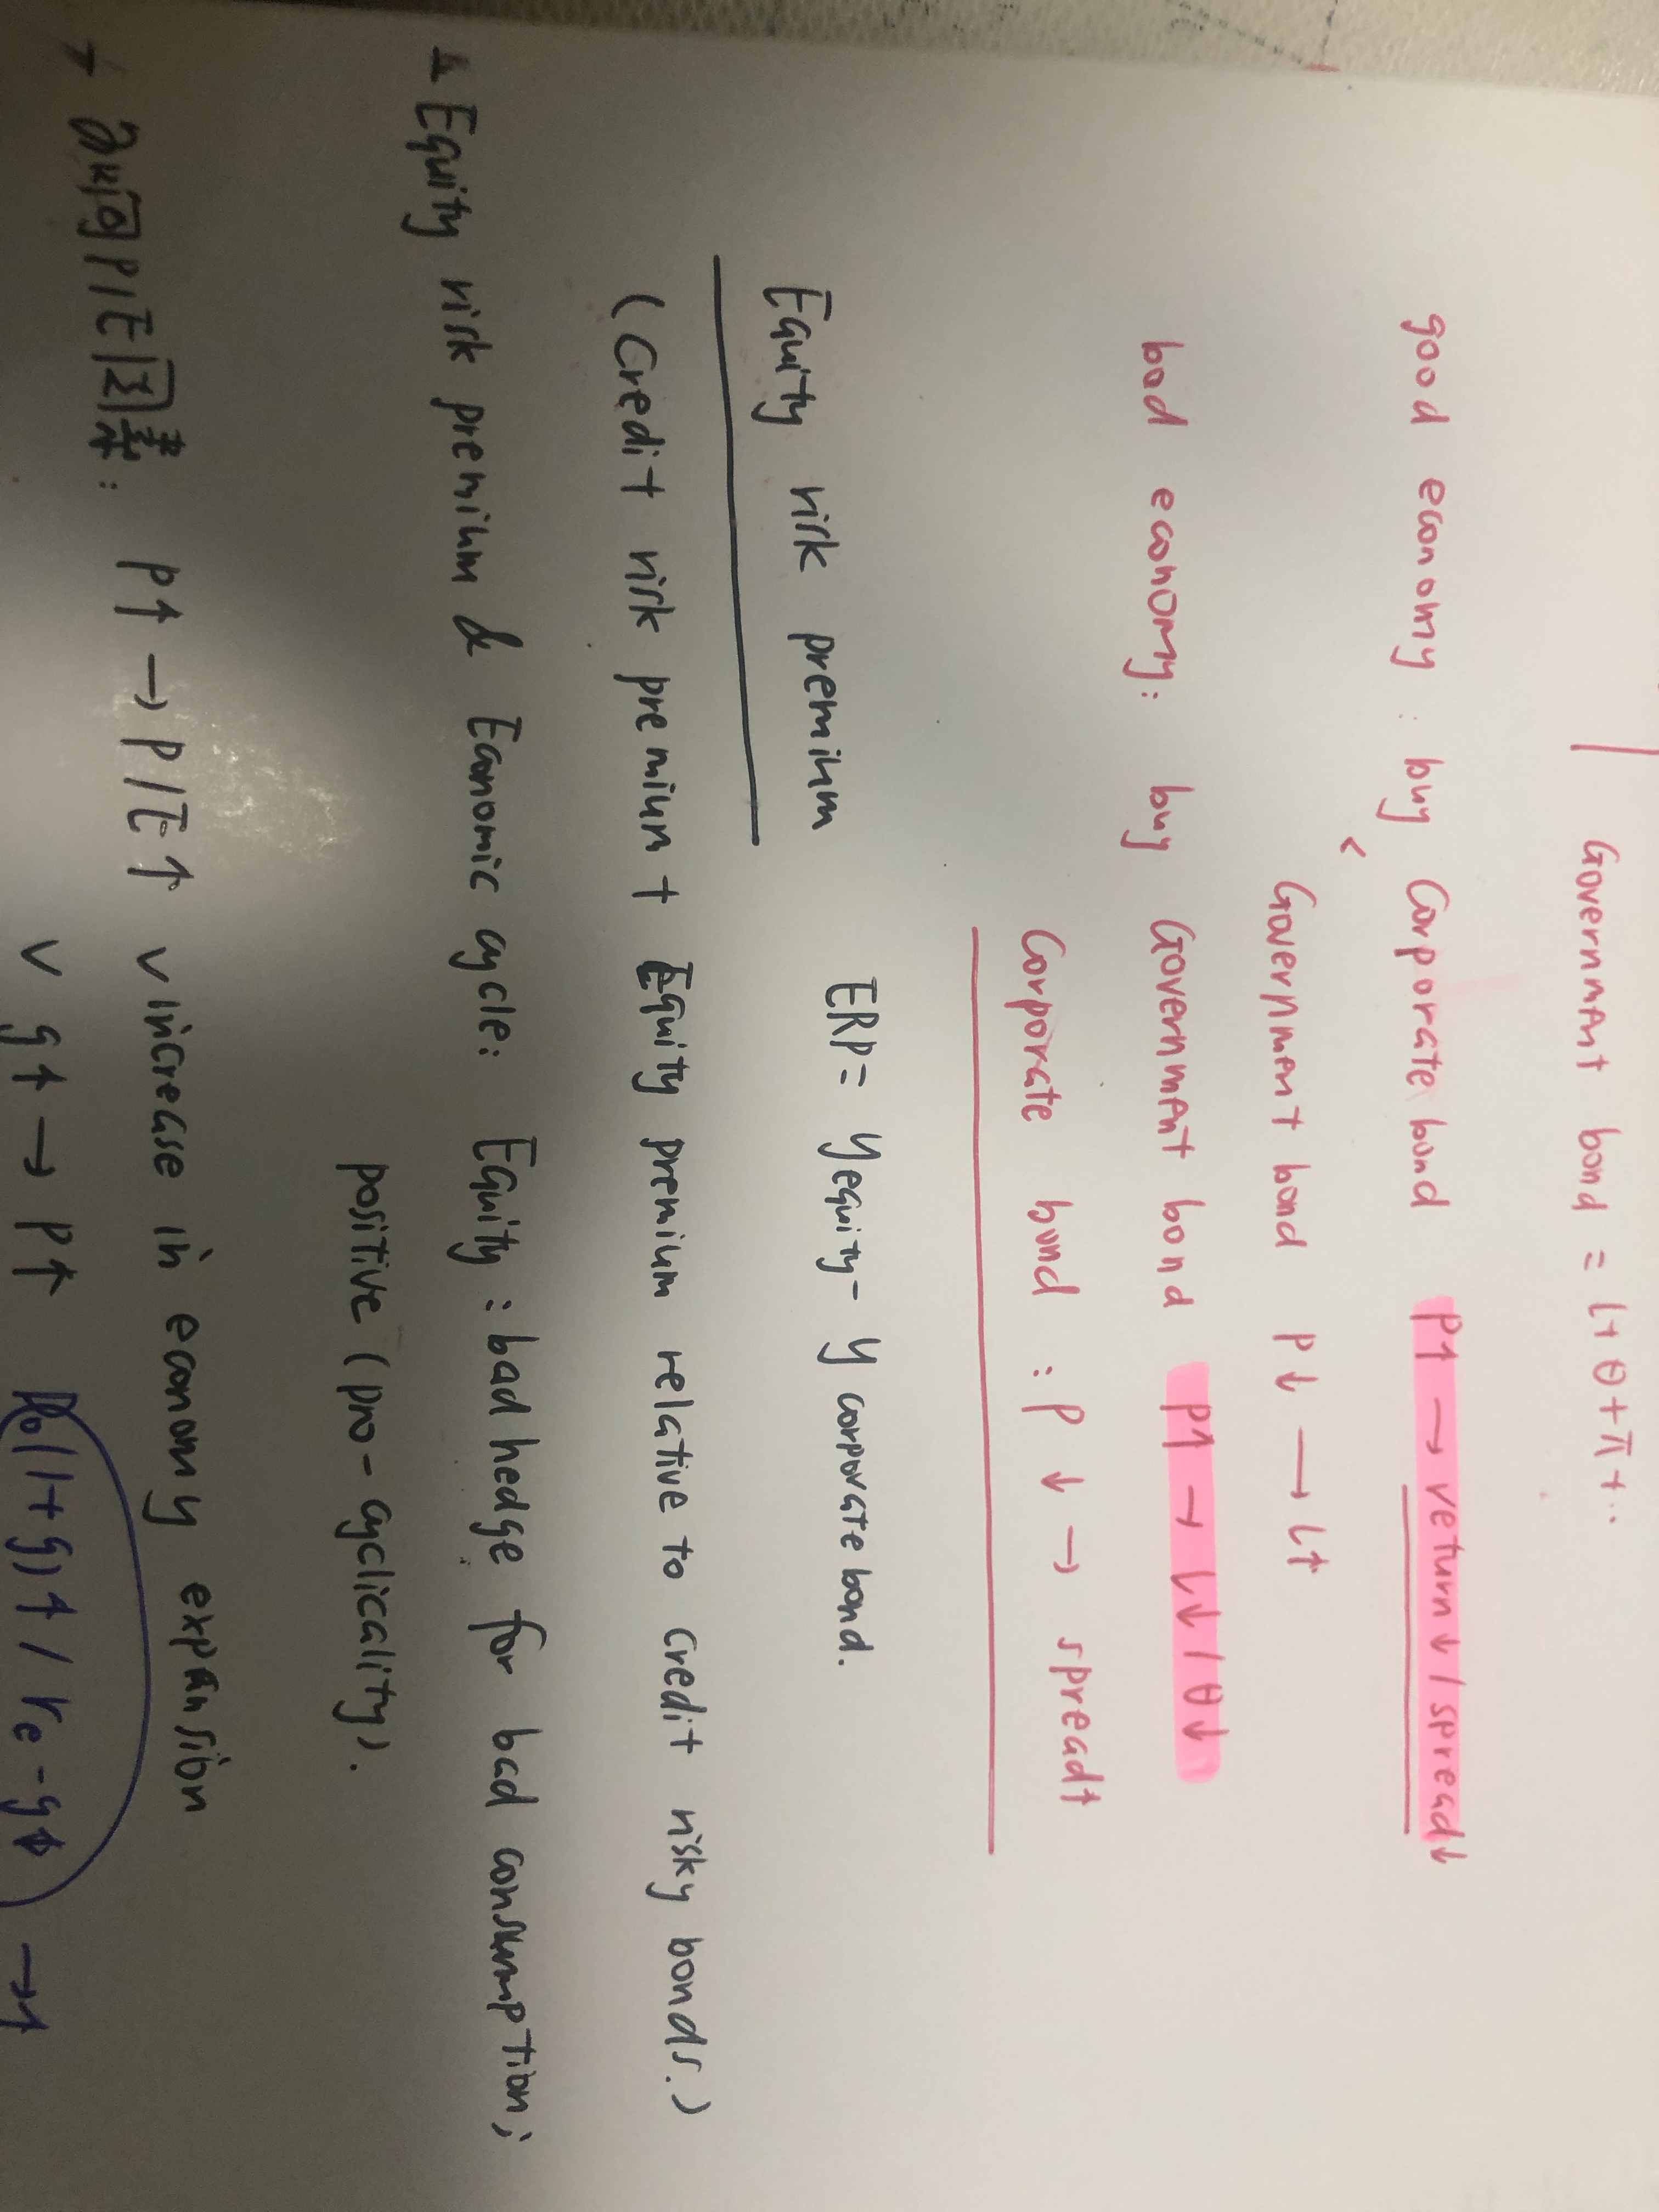 Government bond = l + θ + π + ..
good economy : buy Corporate bond P↑ → return↓ / spread↓
Government bond P↓ → l↑
bad economy: buy Government bond P↑ → l↓ / θ↓
Corporate bond : P ↓ → spread↑
Equity risk premium ERP = yequity - y corporate bond.
(Credit risk premium + Equity premium relative to credit risky bonds.)
Equity risk premium & Economic cycle: Equity : bad hedge for bad consumption;
positive (pro-cyclicality).
影响P/E因素: P↑ → P/E↑ ∨ increase in economy expansion
∨ g↑ → P↑ D₀(1+g)↑ / re - g↑ → ↑